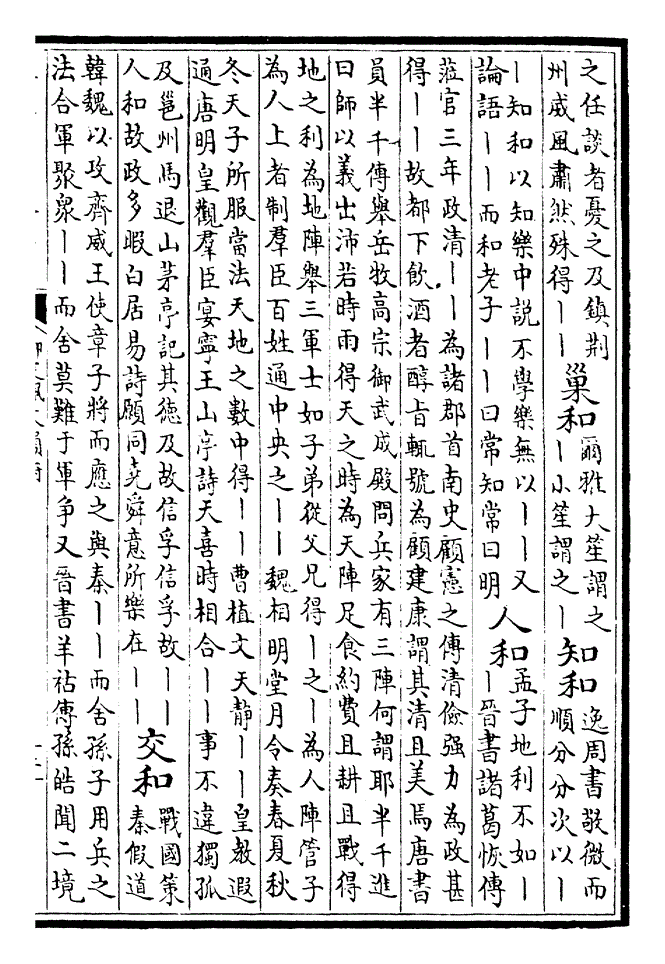 之任談者憂之及鎮荆
州威風肅然殊得丨丨
巢和
爾雅大笙謂之
丨小笙謂之丨
知和
逸周書敬微而
順分分次以丨
丨知和以知樂中說不學樂無以丨丨又
論語丨丨而和老子丨丨曰常知常曰明
人和
孟子地利不如丨
丨晉書諸葛恢傳
蒞官三年政清丨丨為諸郡首南史顧憲之傳清儉强力為政甚
得丨丨故都下飲酒者醇旨輒號為顧建康謂其清且美焉唐書
員半千傳舉岳牧高宗御武成殿問兵家有三陣何謂耶半千進
曰師以義出沛若時雨得天之時為天陣足食約費且耕且戰得
地之利為地陣舉三軍士如子弟從父兄得丨之丨為人陣管子
為人上者制羣臣百姓通中央之丨丨魏相明堂月令奏春夏秋
冬天子所服當法天地之數中得丨丨曹植文天靜丨丨皇教遐
通唐明皇觀羣臣宴寧王山亭詩天喜時相合丨丨事不違獨孤
及邕州馬退山茅亭記其德及故信孚信孚故丨丨
人和故政多暇白居易詩願同堯舜意所樂在丨丨
交和
戰國策
秦假道
韓魏以攻齊威王使章子將而應之與秦丨丨而舍孫子用兵之
法合軍聚衆丨丨而舍莫難于軍争又晉書羊祜傳孫皓聞二境